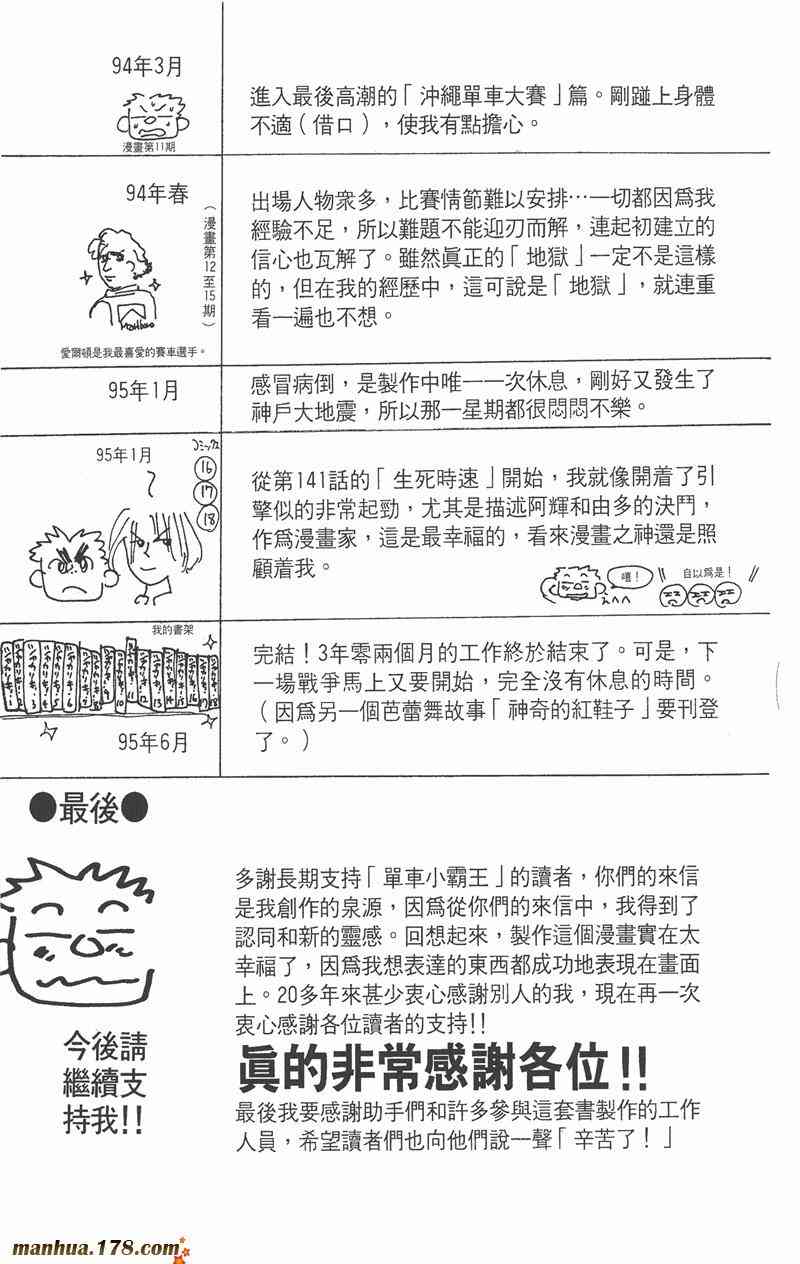 94年3月
漫畫第11期
進入最後高潮的「沖繩單車大賽」篇。剛踫上身體
不適（借口），使我有點擔心。
94年春
（漫畫第12至15期）
愛爾頓是我最喜愛的賽車選手。
出場人物衆多，比賽情節難以安排…一切都因爲我
經驗不足，所以難題不能迎刃而解，連起初建立的
信心也瓦解了。雖然眞正的「地獄」一定不是這樣
的，但在我的經歷中，這可說是「地獄」，就連重
看一遍也不想。
95年1月
感冒病倒，是製作中唯一一次休息，剛好又發生了
神戶大地震，所以那一星期都很悶悶不樂。
95年1月
コミックス
16
17
18
從第141話的「生死時速」開始，我就像開着了引
擎似的非常起勁，尤其是描述阿輝和由多的決鬥，
作爲漫畫家，這是最幸福的，看來漫畫之神還是照
顧着我。
嘻！
自以爲是！
我的書架
95年6月
完結！3年零兩個月的工作終於結束了。可是，下
一場戰爭馬上又要開始，完全沒有休息的時間。
（因爲另一個芭蕾舞故事「神奇的紅鞋子」要刊登
了。）
●最後●
今後請
繼續支
持我!!
多謝長期支持「單車小霸王」的讀者，你們的來信
是我創作的泉源，因爲從你們的來信中，我得到了
認同和新的靈感。回想起來，製作這個漫畫實在太
幸福了，因爲我想表達的東西都成功地表現在畫面
上。20多年來甚少衷心感謝別人的我，現在再一次
衷心感謝各位讀者的支持!!
眞的非常感謝各位!!
最後我要感謝助手們和許多參與這套書製作的工作
人員，希望讀者們也向他們說一聲「辛苦了！」
manhua.178.com